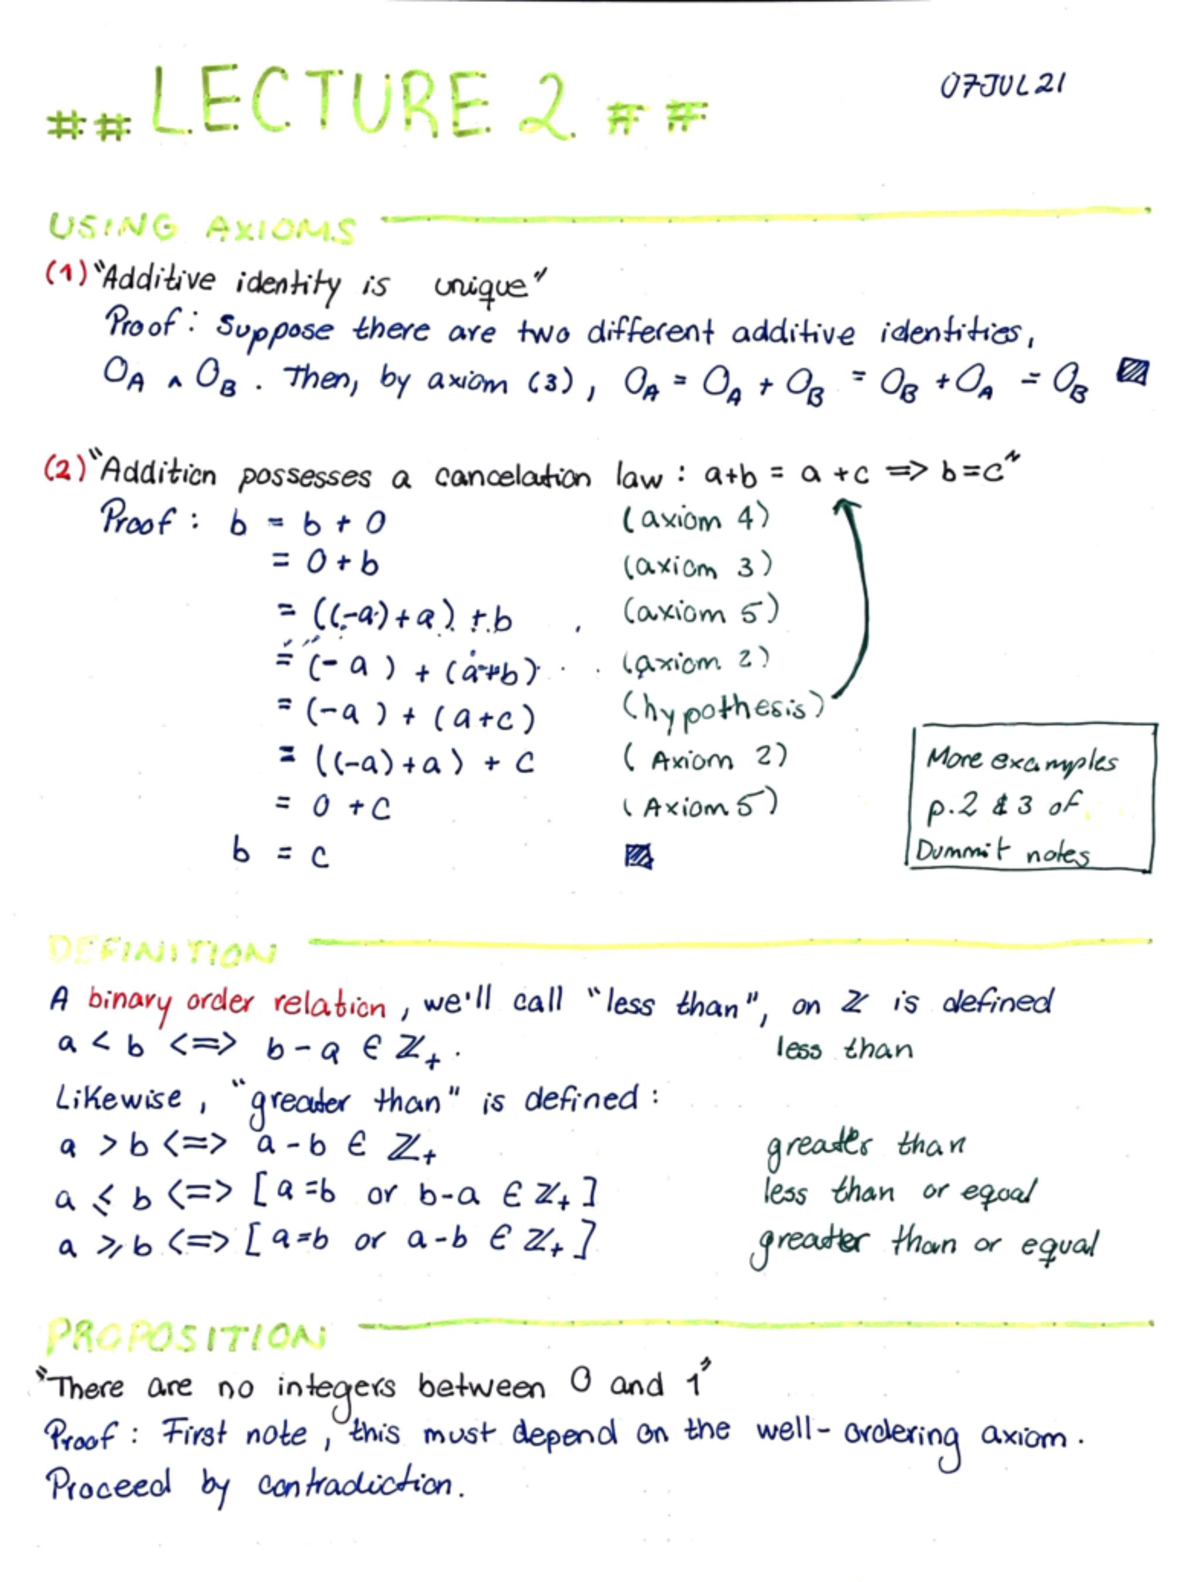 ## LECTURE 2 ##
07JUL21
USING AXIOMS
(1) "Additive identity is unique"
Proof: Suppose there are two different additive identities,
0_A ∧ 0_B. Then, by axiom (3), 0_A = 0_A + 0_B = 0_B + 0_A = 0_B
(2) "Addition possesses a cancelation law: a+b = a+c => b=c"
Proof: b = b + 0 (axiom 4)
= 0 + b (axiom 3)
= ((-a)+a) + b (axiom 5)
= (-a) + (a+b) (axiom 2)
= (-a) + (a+c) (hypothesis)
= ((-a)+a) + c (Axiom 2)
= 0 + c (Axiom 5)
b = c
More examples
p.2 & 3 of
Dummit notes
DEFINITION
A binary order relation, we'll call "less than", on ℤ is defined
a < b <=> b-a ∈ ℤ₊. less than
Likewise, "greater than" is defined:
a > b <=> a-b ∈ ℤ₊ greater than
a ⩽ b <=> [a=b or b-a ∈ ℤ₊] less than or equal
a ⩾ b <=> [a=b or a-b ∈ ℤ₊] greater than or equal
PROPOSITION
"There are no integers between 0 and 1"
Proof: First note, this must depend on the well-ordering axiom.
Proceed by contradiction.